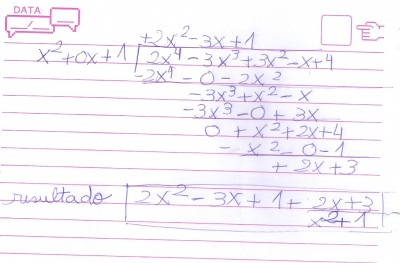 DATA
+2x²-3x+1
x²+0x+1 2x⁴-3x³+3x²-x+4
-2x⁴-0-2x²
-3x³+x²-x
-3x³-0+3x
0+x²+2x+4
-x²-0-1
+2x+3
resultado 2x²-3x+1+2x+3
x²+1